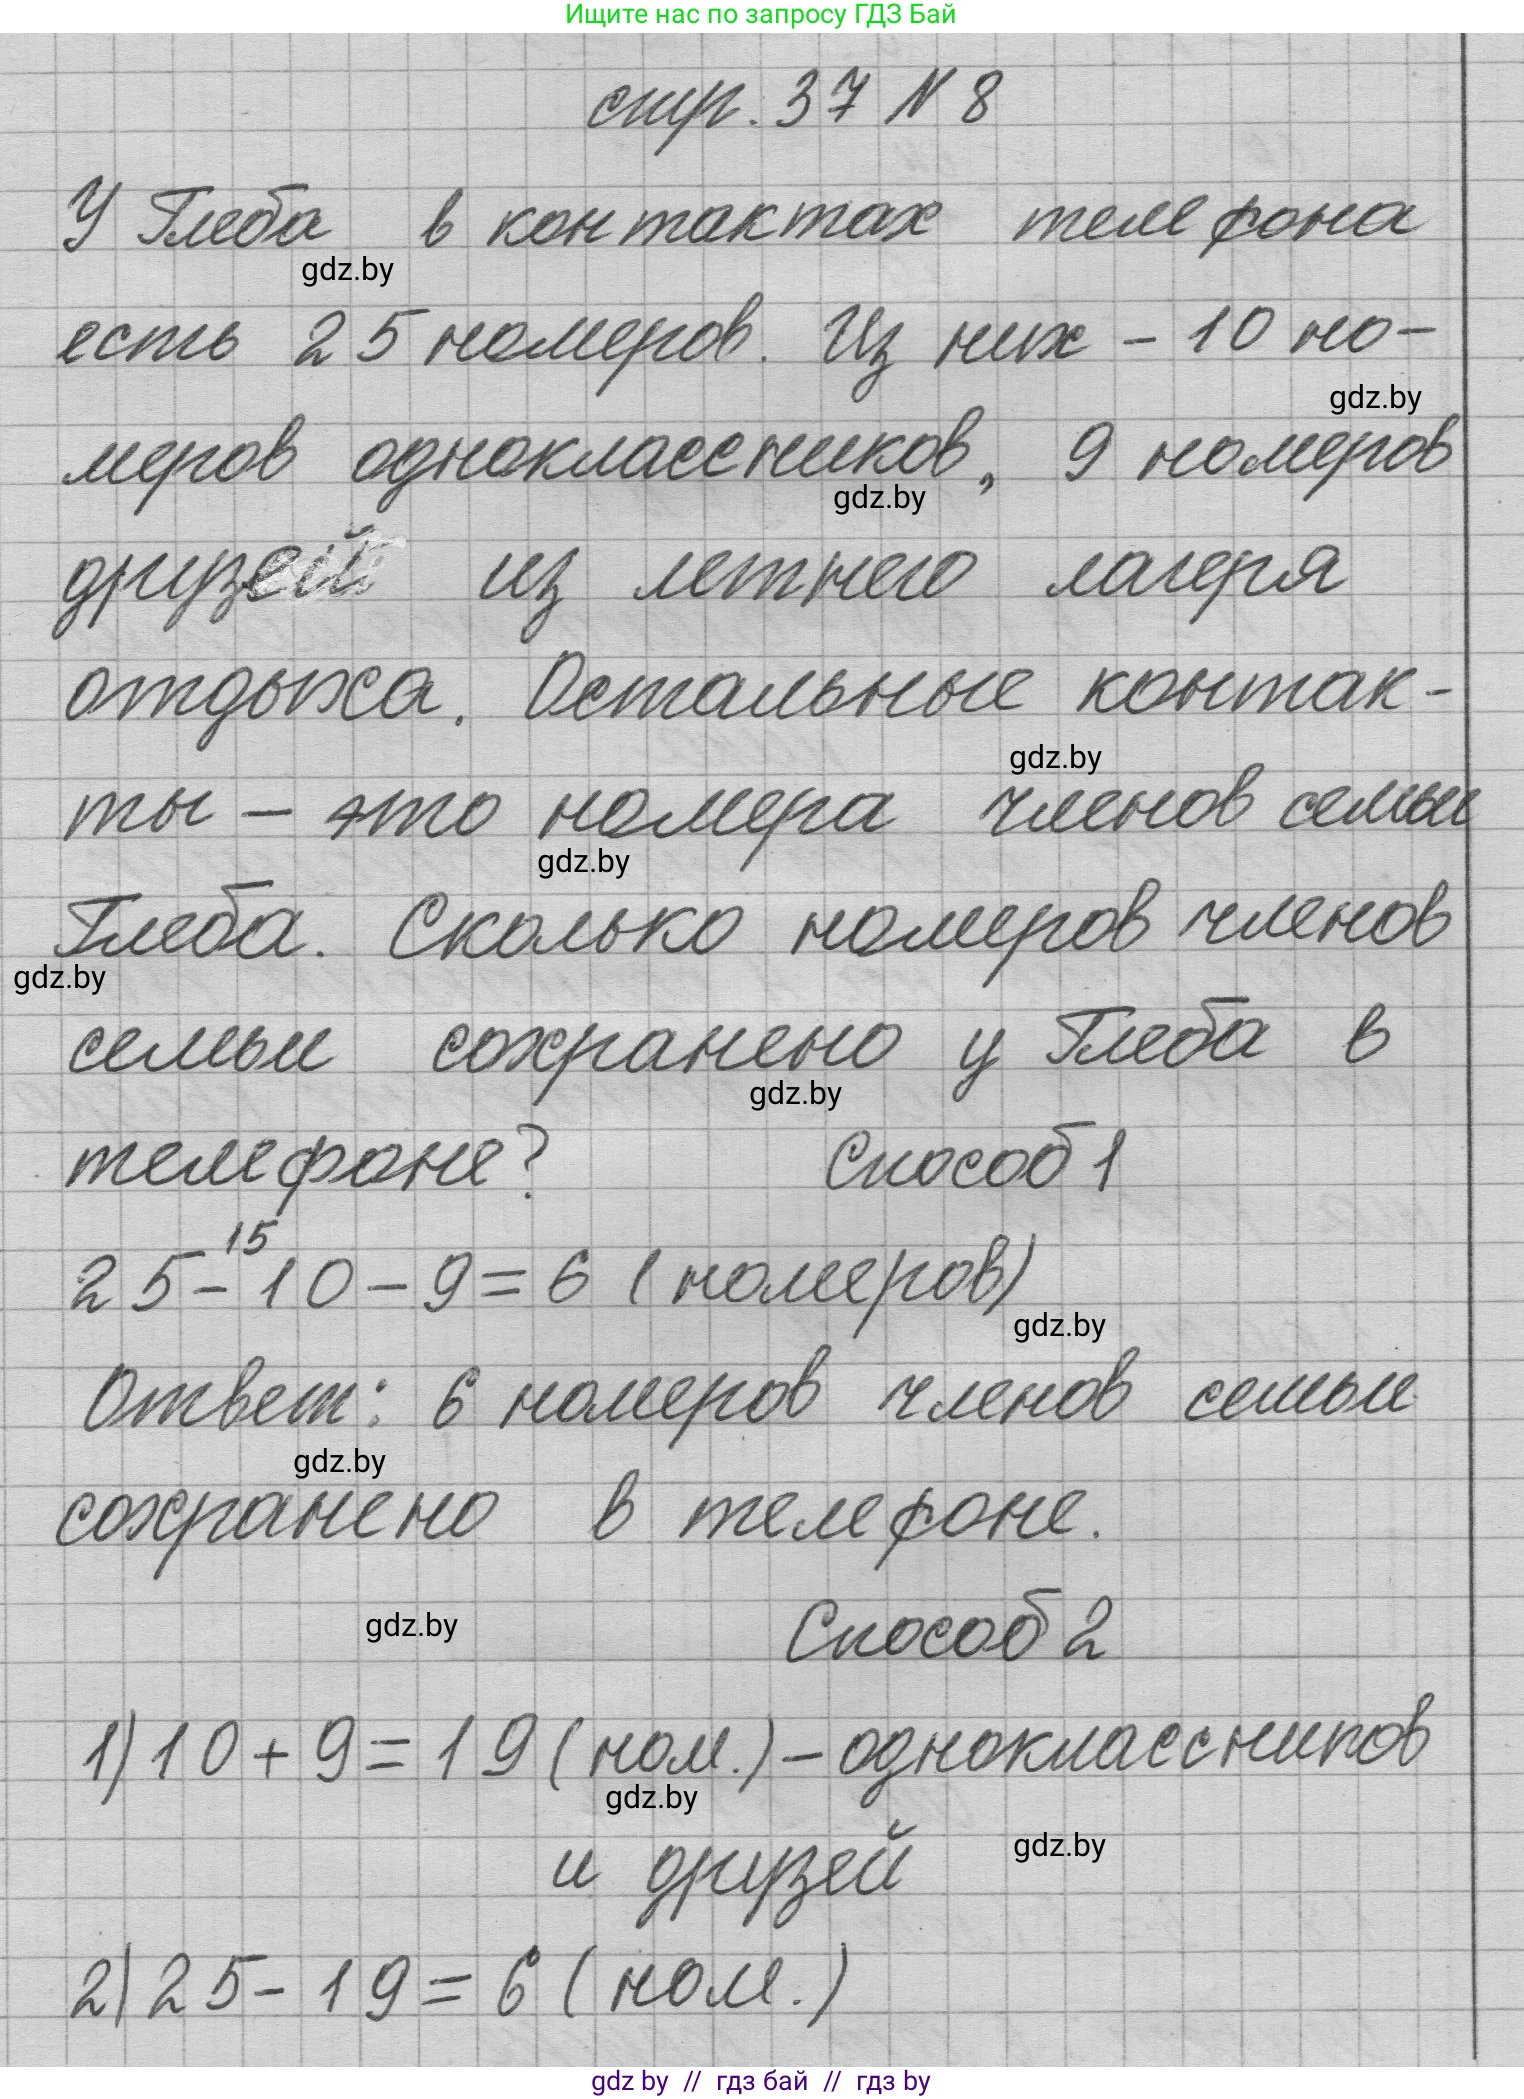 Ищите нас по запросу ГДЗ Бай
стр. 37 N 8
У Глеба в контактах телефона
gdz.by
есть 25 номеров. Из них - 10 но-
gdz.by
меров одноклассников, 9 номеров
gdz.by
друзей из летнего лагеря
отдыха. Остальные контак-
gdz.by
ты - это номера членов семьи
gdz.by
Глеба. Сколько номеров членов
gdz.by
семьи сохранено у Глеба в
gdz.by
телефоне? Способ 1
15
25-10-9=6 (номеров)
gdz.by
Ответ: 6 номеров членов семьи
gdz.by
сохранено в телефоне.
gdz.by
Способ 2
1) 10+9=19 (ном.) - одноклассников
gdz.by
и друзей
gdz.by
2) 25-19=6 (ном.)
gdz by // гдз бай // гдз by